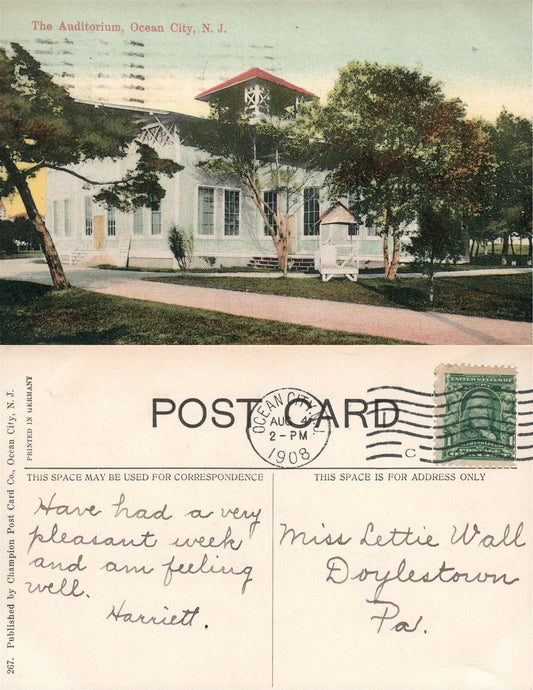 The Auditorium, Ocean City, N. J.
267. Published by Champion Post Card Co., Ocean City, N. J.
PRINTED IN GERMANY
POST CARD
OCEAN CITY, N.J.
AUG
2-PM
1908
C
UNITED STATES
FRANKLIN
THIS SPACE MAY BE USED FOR CORRESPONDENCE
THIS SPACE IS FOR ADDRESS ONLY
Have had a very
pleasant week
and am feeling
well.
Harriett.
Miss Lettie Wall
Doylestown
Pa.